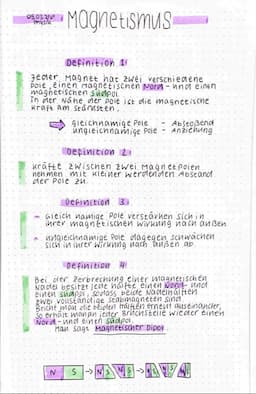 Magnetismus
Definition 1:
Jeder Magnet hat zwei verschiedene
Pole, einen magnetischen Nord- und einen
magnetischen Südpol.
In der Nähe der Pole ist die magnetische
Kraft am stärksten.
gleichnamige Pole - Abstoßend
ungleichnamige Pole - Anziehung
Definition 2:
Kräfte zwischen zwei Magnetpolen
nehmen mit kleiner werdenden Abstand
der Pole zu.
Definition 3:
- Gleich namige Pole verstärken sich in
ihrer magnetischen Wirkung nach außen
- ungleichnamige Pole dagegen schwächen
sich in ihrer Wirkung nach außen ab.
Definition 4:
Bei der Zerbrechung einer magnetischen
Nadel besitzt jede Hälfte einen Nord- und
einen Südpol, sodass beide Nadelhälften
zwei vollständige Stabmagneten sind.
Bricht man die beiden Hälften erneut auseinander,
so erhält man an jeder Bruchstelle wieder einen
Nord- und einen Südpol.
Man sagt Magnetischer Dipol
N S → N S N S →